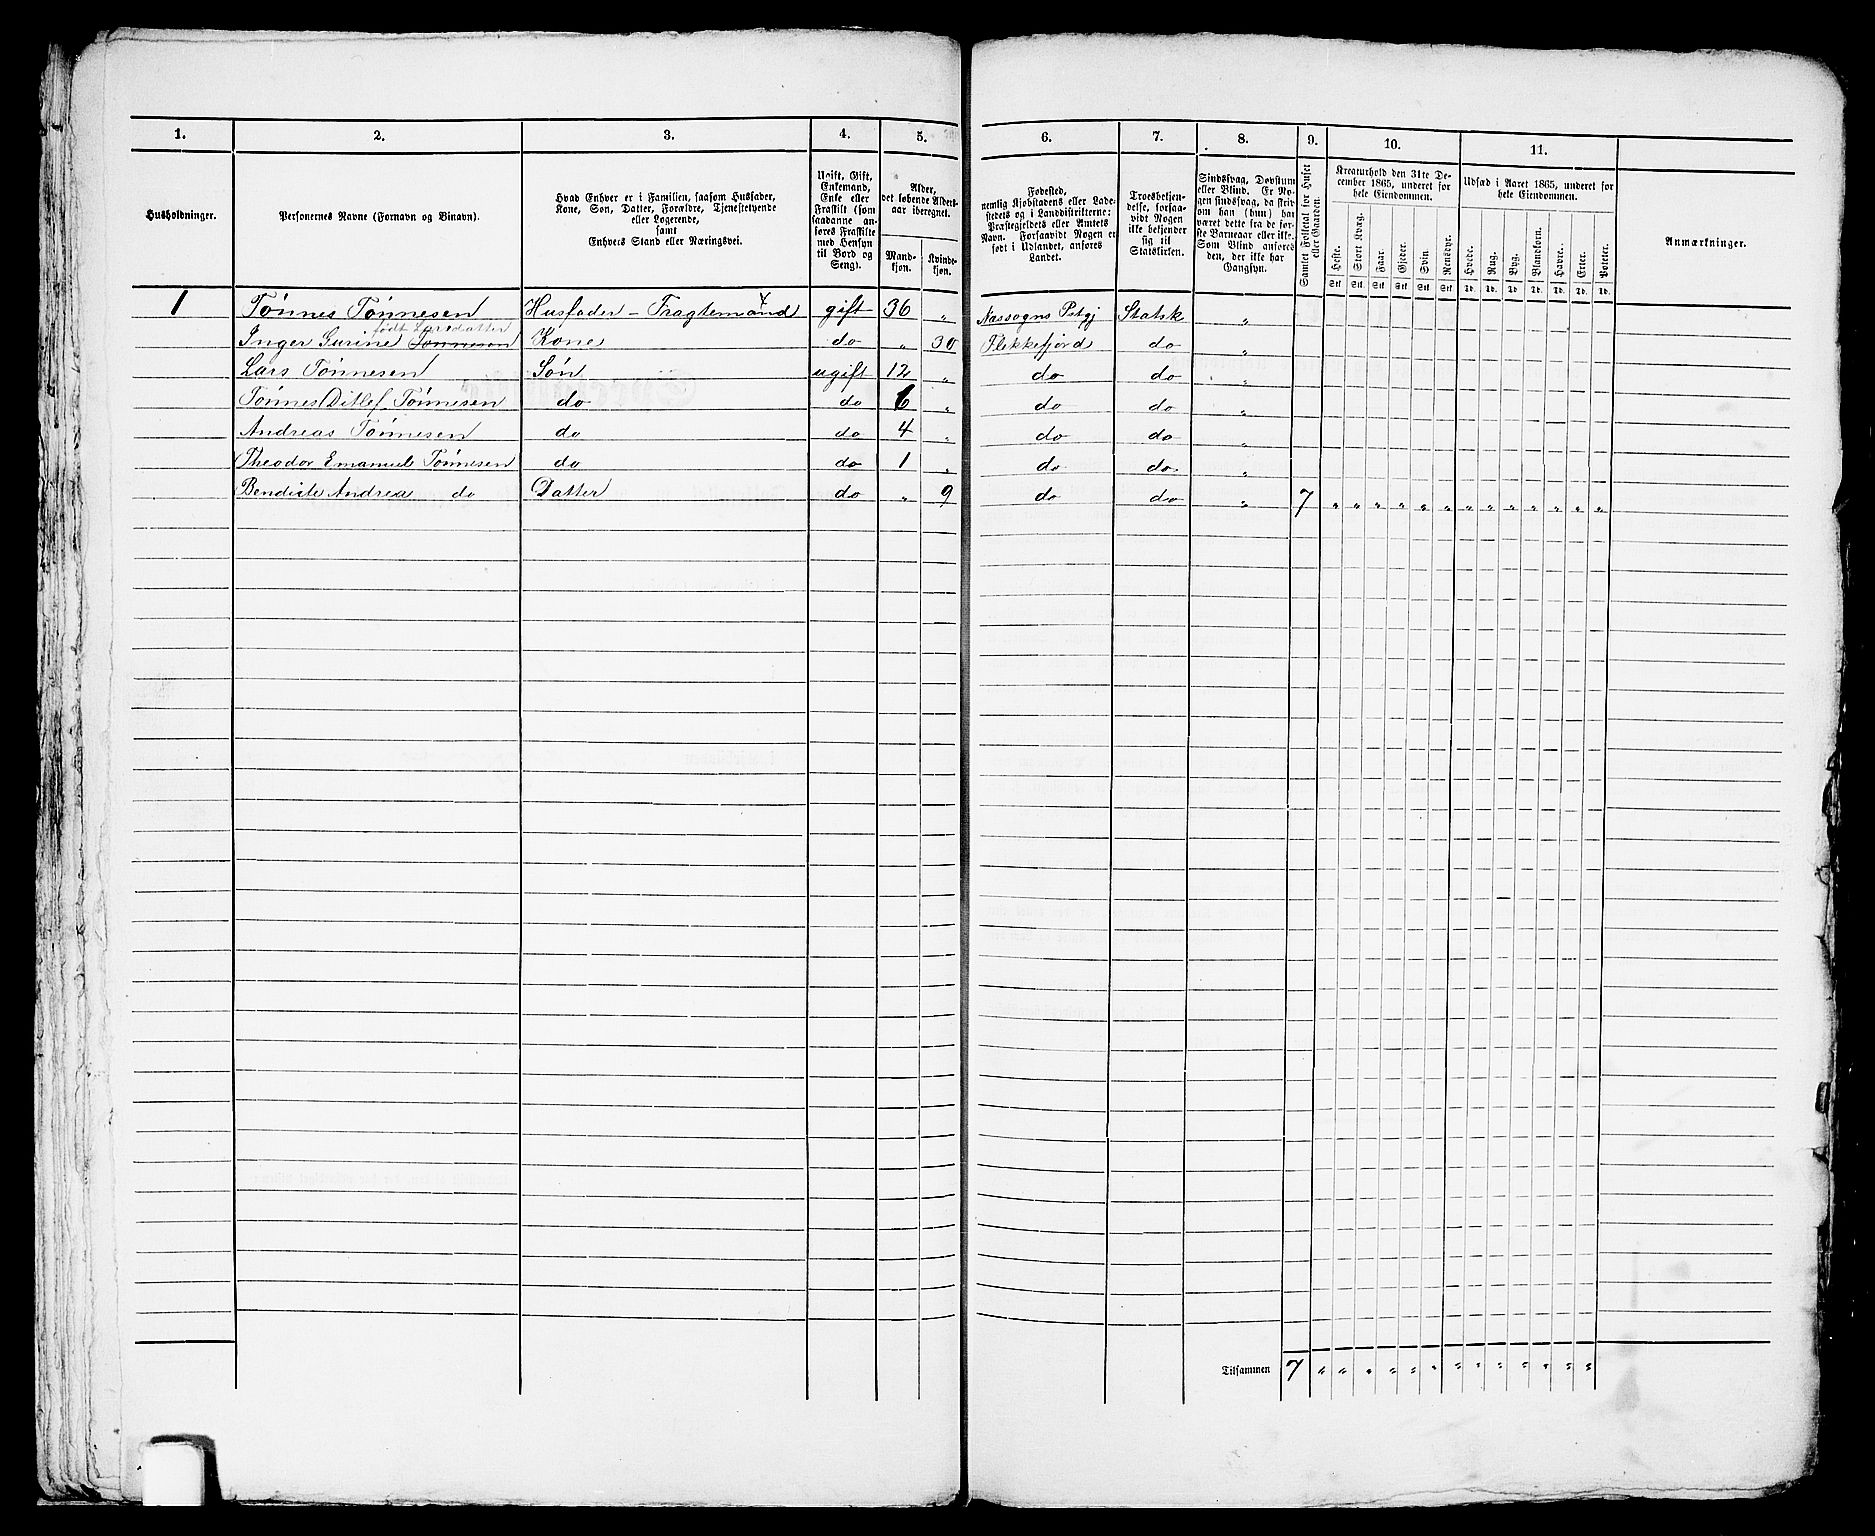 1. 2. 3. 4. 5. 6. 7. 8. 9. 10. 11.
Husholdninger.
Personernes Navne (Fornavn og Binavn).
Hvad Enhver er i Familien, saasom Husfader,
Kone, Søn, Datter, Forældre, Tjenestetyende
eller Logerende,
samt
Enhvers Stand eller Næringsvei.
Ugift, Gift,
Enkemand,
Enke eller
Fraskilt (som
saadanne an-
føres Fraskilte
med Hensyn
til Bord og
Seng).
Alder,
det løbende Alders-
aar iberegnet.
Mand-
kjøn.
Kvinde-
kjøn.
Fødested,
nemlig Kjøbstadens eller Lade-
stedets og i Landdistrikterne:
Præstegjeldets eller Amtets
Navn. Forsaavidt Nogen er
født i Udlandet, anføres
Landet.
Troesbekjen-
delse, forsaa-
vidt Nogen
ikke bekjender
sig til
Statskirken.
Sindssvag, Døvstum
eller Blind. Er No-
gen sindssvag, da skri-
ves om han (hun) har
været dette fra de før-
ste Barneaar eller ikke.
Som Blind anføres
den, der ikke har
Gangsyn.
Samlet Folketal for Huset
eller Gaarden.
Kreaturhold den 31te De-
cember 1865, underet for
hele Eiendommen.
Heste. Stort Kvæg. Faar. Gjeder. Svin. Rensdyr.
Stk Stk Stk Stk Stk Stk
Udsæd i Aaret 1865, underet for
hele Eiendommen.
Hvede. Rug. Byg. Blankorn. Havre. Erter. Poteter.
Td. Td. Td. Td. Td. Td. Td.
Anmærkninger.
1 Tønnes Tønnesen Husfader - Fragtemand gift 36 „ Statsk „
født Larsdatter
Inger Gurine Tønnesen Kone do „ 30 Flekkefjord do „
Lars Tønnesen Søn ugift 12 „ do do „
Tønnes Ditlef Tønnesen do do 6 „ do do „
Andreas Tønnesen do do 4 „ do do „
Theodor Emanuel Tønnesen do do 1 „ do do „
Andrea do Datter do „ 9 do do „ 7 „ „ „ „ „ „ „ „ „ „ „ „ „
Tilsammen 7 „ „ „ „ „ „ „ „ „ „ „ „ „